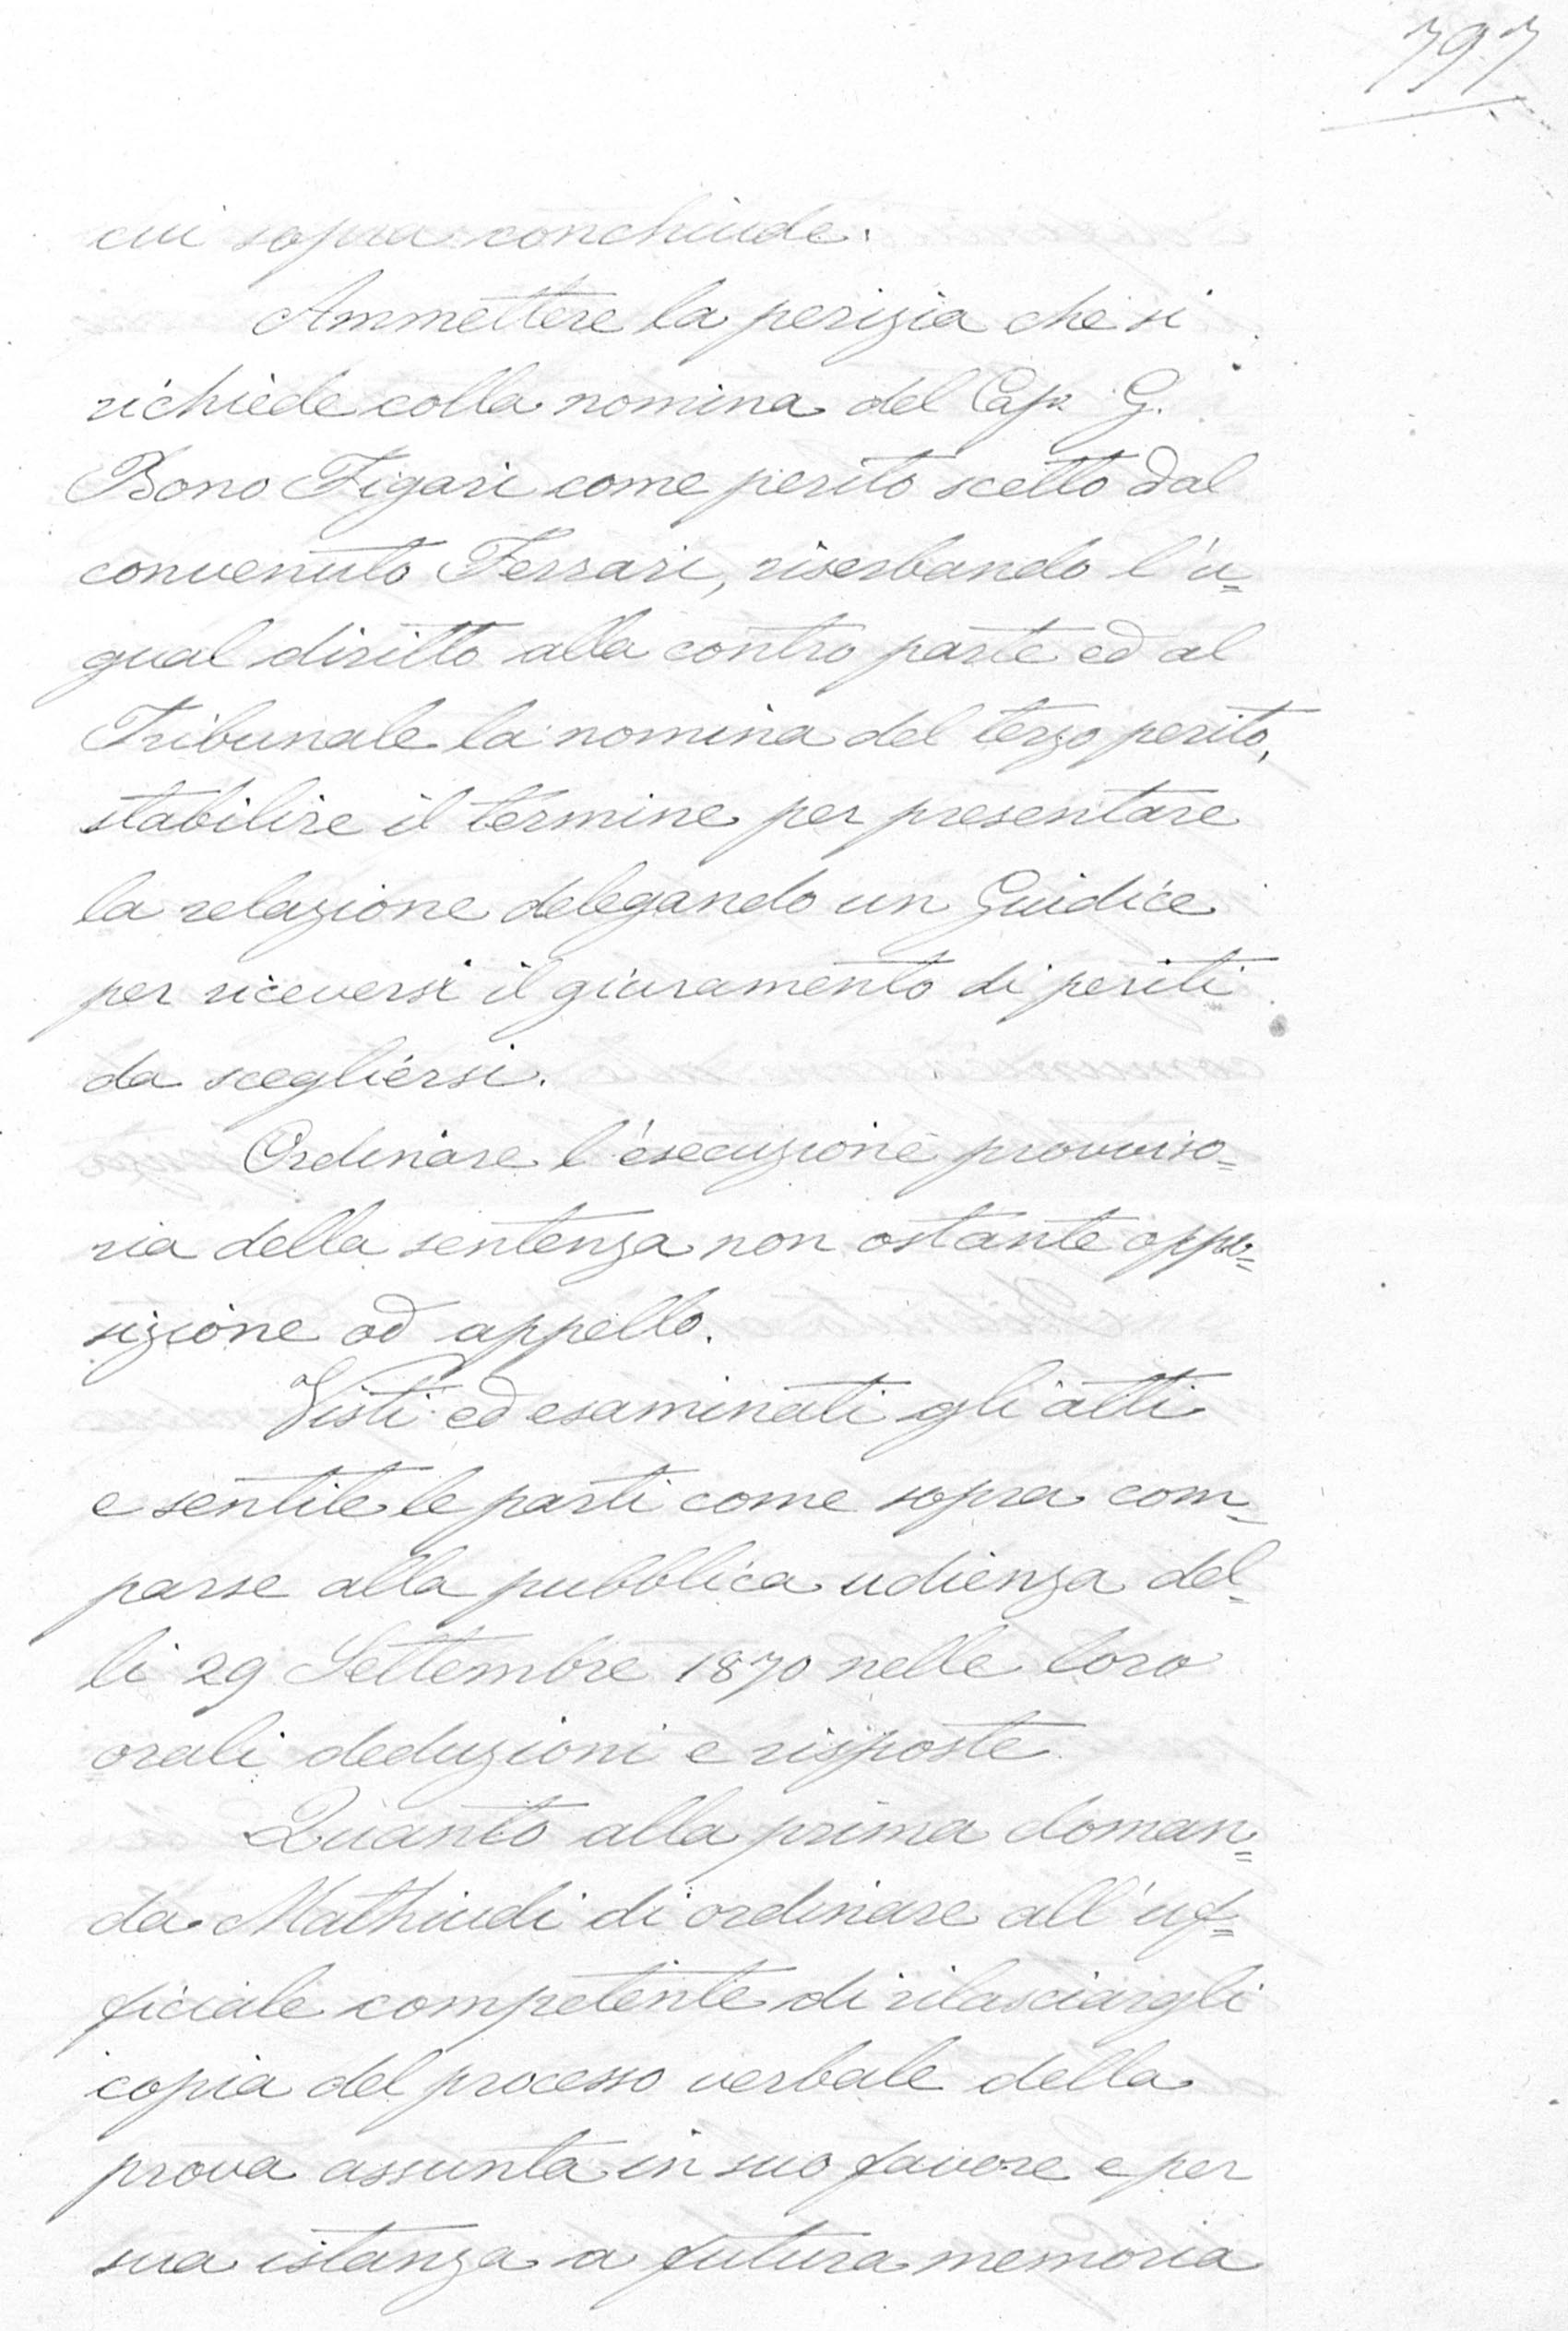 797
cui sopra conchiude:
Ammettere la perizia che si
richiede colla nomina del Cap. G.
Bono Figari come perito scelto dal
convenuto Ferrari, riserbando l'u=
gual diritto alla contro parte ed al
Tribunale la nomina del terzo perito,
stabilire il termine per presentare
la relazione delegando un Giudice
per riceversi il giuramento di periti
da scegliersi.
Ordinare l'esecuzione provviso=
ria della sentenza non ostante oppo=
sizione od appello.
Visti ed esaminati gli atti
e sentite le parti come sopra com=
parse alla pubblica udienza del=
li 29 Settembre 1870 nelle loro
orali deduzioni e risposte
Quanto alla prima doman=
da Mathiudi di ordinare all'uf=
ficiale competente di rilasciargli
copia del processo verbale della
prova assunta in suo favore e per
sua istanza a futura memoria